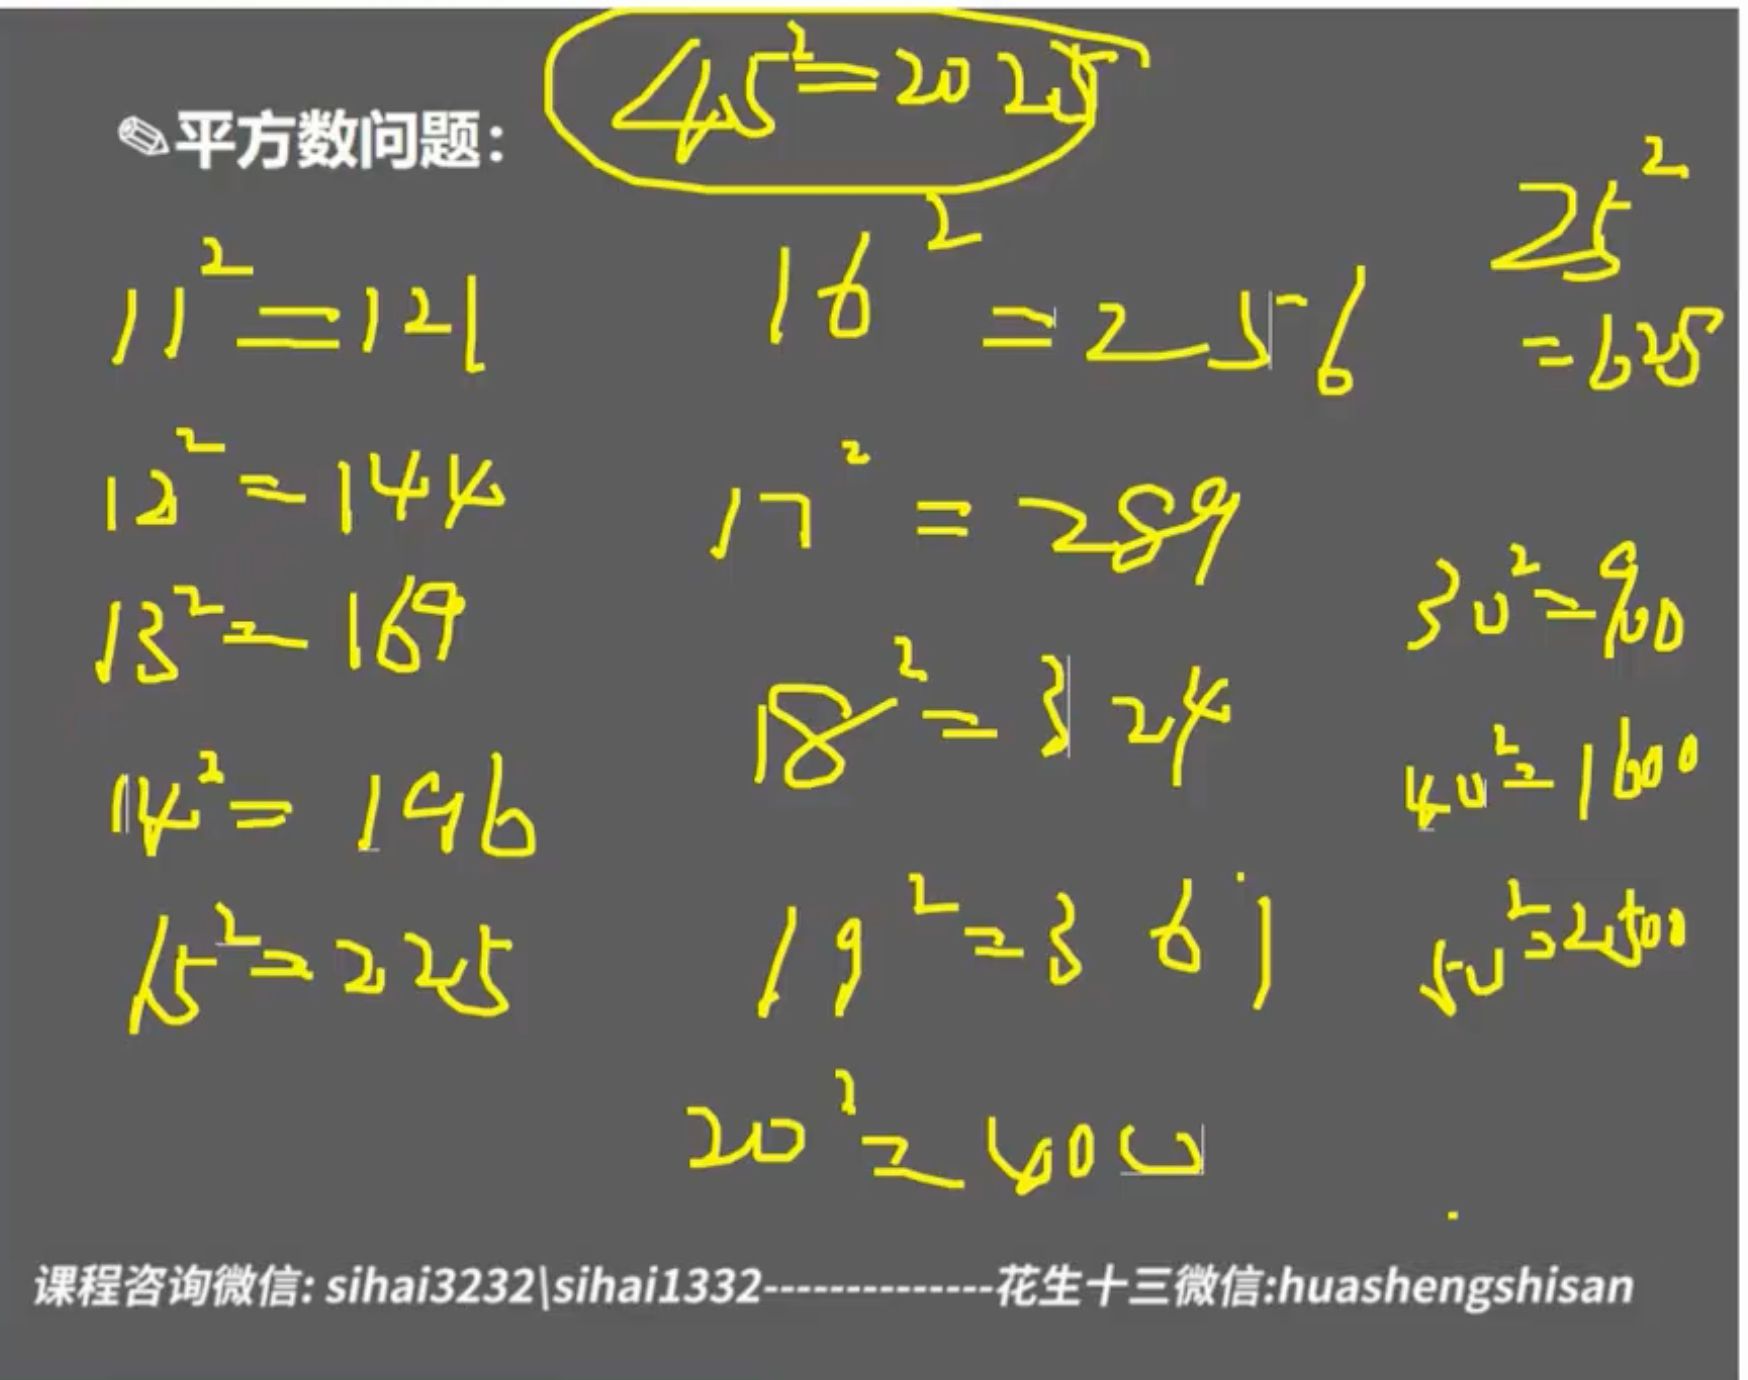 45²=2025
平方数问题：
11²=121
12²=144
13²=169
14²=196
15²=225
16²=256
17²=289
18²=324
19²=361
20²=400
25²
=625
30²=900
40²=1600
50²=2500
课程咨询微信: sihai3232\sihai1332--------------花生十三微信:huashengshisan